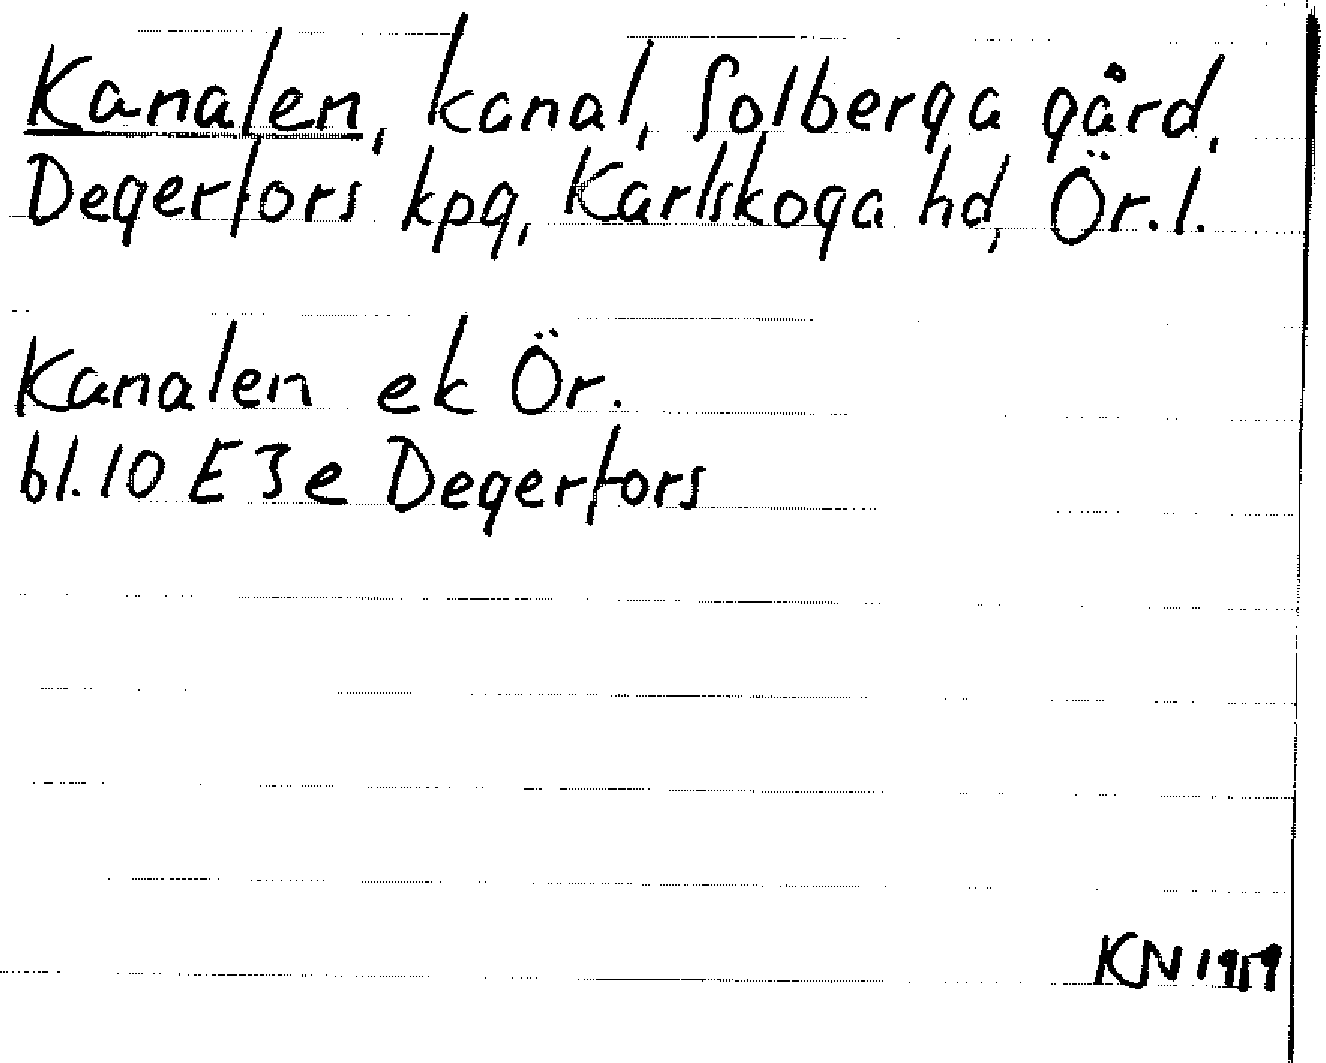 Kanalen, kanal, Solberga gård,
Degerfors kpg, Karlskoga hd, Ör.l.
Kanalen ek Ör.
bl.10 E 3e Degerfors
KN 1959